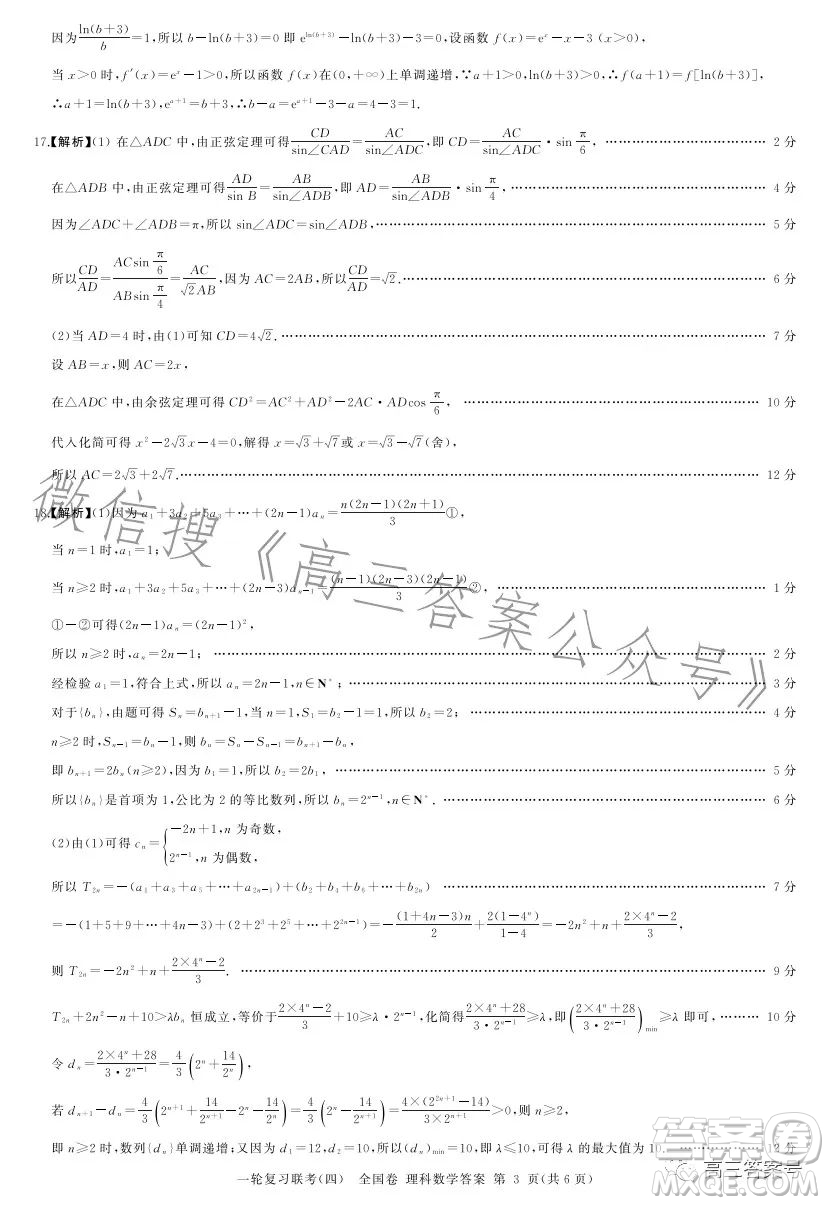 因为ln(b+3)/b=1,所以 b-ln(b+3)=0 即 e^{ln(b+3)}-ln(b+3)-3=0,设函数 f(x)=e^x-x-3 (x>0),
当 x>0 时,f'(x)=e^x-1>0,所以函数 f(x)在(0,+∞)上单调递增,∵a+1>0,ln(b+3)>0,∴f(a+1)=f[ln(b+3)],
∴a+1=ln(b+3),e^{a+1}=b+3,∴b-a=e^{a+1}-3-a=4-3=1.
17.【解析】(1) 在△ADC 中,由正弦定理可得CD/sin∠CAD=AC/sin∠ADC,即 CD=AC/sin∠ADC·sin π/6, …… 2 分
在△ADB 中,由正弦定理可得AD/sin B=AB/sin∠ADB,即 AD=AB/sin∠ADB·sin π/4, …… 4 分
因为∠ADC+∠ADB=π,所以 sin∠ADC=sin∠ADB, …… 5 分
所以CD/AD=(ACsin π/6)/(ABsin π/4)=AC/(√2AB),因为 AC=2AB,所以CD/AD=√2. …… 6 分
(2)当 AD=4 时,由(1)可知 CD=4√2. …… 7 分
设 AB=x,则 AC=2x,
在△ADC 中,由余弦定理可得 CD²=AC²+AD²-2AC·ADcos π/6, …… 10 分
代入化简可得 x²-2√3x-4=0,解得 x=√3+√7或 x=√3-√7(舍),
所以 AC=2√3+2√7. …… 12 分
18.【解析】(1)因为 a₁+3a₂+5a₃+…+(2n-1)aₙ=n(2n-1)(2n+1)/3①,
当 n=1 时,a₁=1;
当 n≥2 时,a₁+3a₂+5a₃+…+(2n-3)aₙ₋₁=(n-1)(2n-3)(2n-1)/3②, …… 1 分
①-②可得(2n-1)aₙ=(2n-1)²,
所以 n≥2 时,aₙ=2n-1; …… 2 分
经检验 a₁=1,符合上式,所以 aₙ=2n-1,n∈N*; …… 3 分
对于{bₙ},由题可得 Sₙ=bₙ₊₁-1,当 n=1,S₁=b₂-1=1,所以 b₂=2; …… 4 分
n≥2 时,Sₙ₋₁=bₙ-1,则 bₙ=Sₙ-Sₙ₋₁=bₙ₊₁-bₙ,
即 bₙ₊₁=2bₙ(n≥2),因为 b₁=1,所以 b₂=2b₁, …… 5 分
所以{bₙ}是首项为 1,公比为 2 的等比数列,所以 bₙ=2^{n-1},n∈N*. …… 6 分
(2)由(1)可得 cₙ={-2n+1,n 为奇数,
2^{n-1},n 为偶数,
所以 T₂ₙ=-(a₁+a₃+a₅+…+a₂ₙ₋₁)+(b₂+b₄+b₆+…+b₂ₙ) …… 7 分
=-(1+5+9+…+4n-3)+(2+2³+2⁵+…+2^{2n-1})=-(1+4n-3)n/2+2(1-4ⁿ)/(1-4)=-2n²+n+(2×4ⁿ-2)/3,
则 T₂ₙ=-2n²+n+(2×4ⁿ-2)/3. …… 9 分
T₂ₙ+2n²-n+10>λbₙ 恒成立,等价于(2×4ⁿ-2)/3+10≥λ·2^{n-1},化简得(2×4ⁿ+28)/(3·2^{n-1})≥λ,即((2×4ⁿ+28)/(3·2^{n-1}))min≥λ 即可, …… 10 分
令 dₙ=(2×4ⁿ+28)/(3·2^{n-1})=4/3(2ⁿ+14/2ⁿ),
若 dₙ₊₁-dₙ=4/3(2^{n+1}+14/2^{n+1}-2ⁿ-14/2ⁿ)=4/3(2ⁿ-14/2^{n+1})=4×(2^{2n+1}-14)/(3×2^{n+1})>0,则 n≥2,
即 n≥2 时,数列{dₙ}单调递增;又因为 d₁=12,d₂=10,所以(dₙ)min=10,即 λ≤10,可得 λ 的最大值为 10. …… 12 分
一轮复习联考(四) 全国卷 理科数学答案 第 3 页(共 6 页)
微信搜《高三答案公众号》
答案圈
MXQE.COM
高三答案号